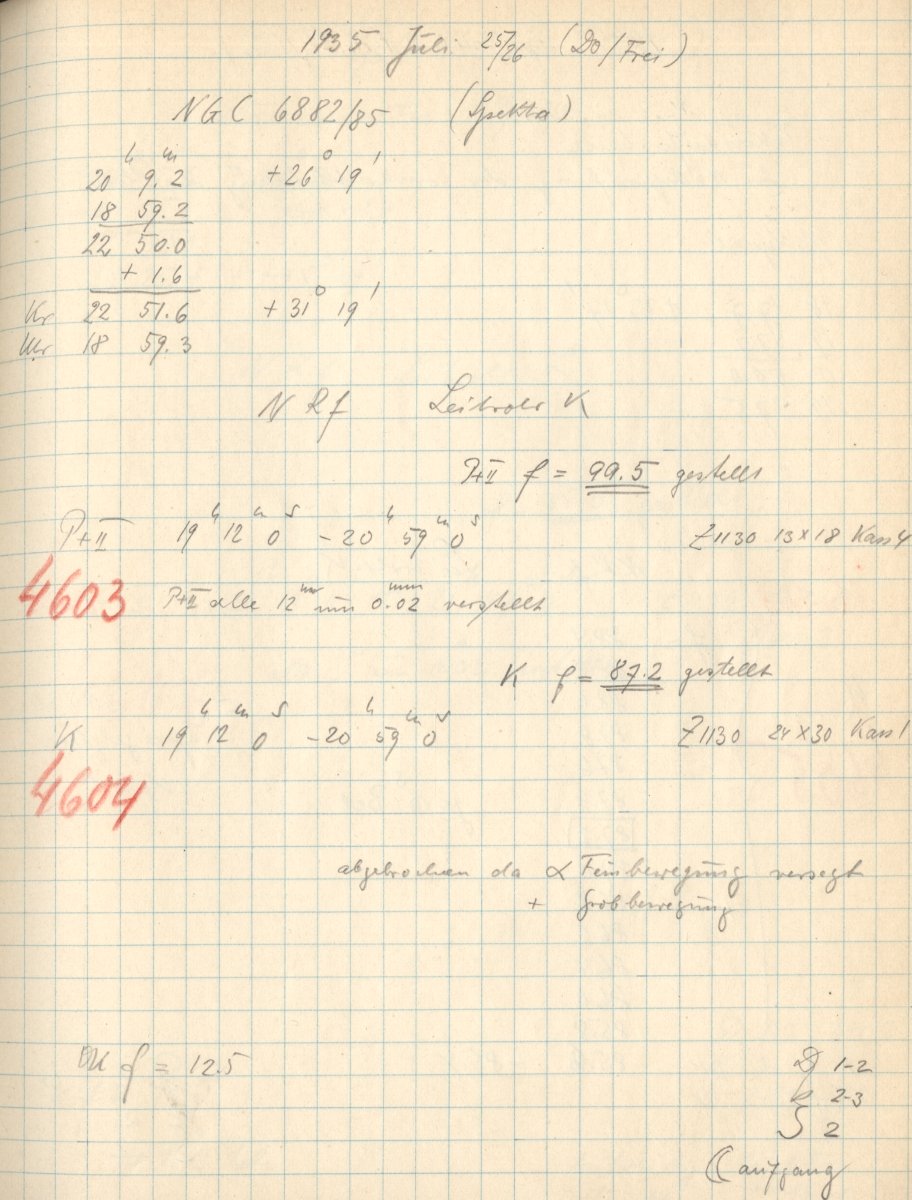 1935 Juli 25/26 (Do/Frei)
NGC 6882/85 (Spektra)
20ʰ 9.2ᵐ +26° 19'
18 59.2
22 50.0
+ 1.6
Kr 22 51.6 +31° 19'
Ur 18 59.3
N Rf Leitrohr K
P+II f = 99.5 gestellt
P+II 19ʰ 12ᵐ 0ˢ - 20ʰ 59ᵐ 0ˢ Z1130 13x18 Kass 4
4603 P+II alle 12ᵐ um 0.02ᵐᵐ verstellt
K f = 87.2 gestellt
K 19ʰ 12ᵐ 0ˢ - 20ʰ 59ᵐ 0ˢ Z1130 24x30 Kass 1
4604
abgebrochen da α Feinbewegung versagt
+ Grobbewegung
f = 12.5
D 1-2
2-3
S 2
☾ aufgang